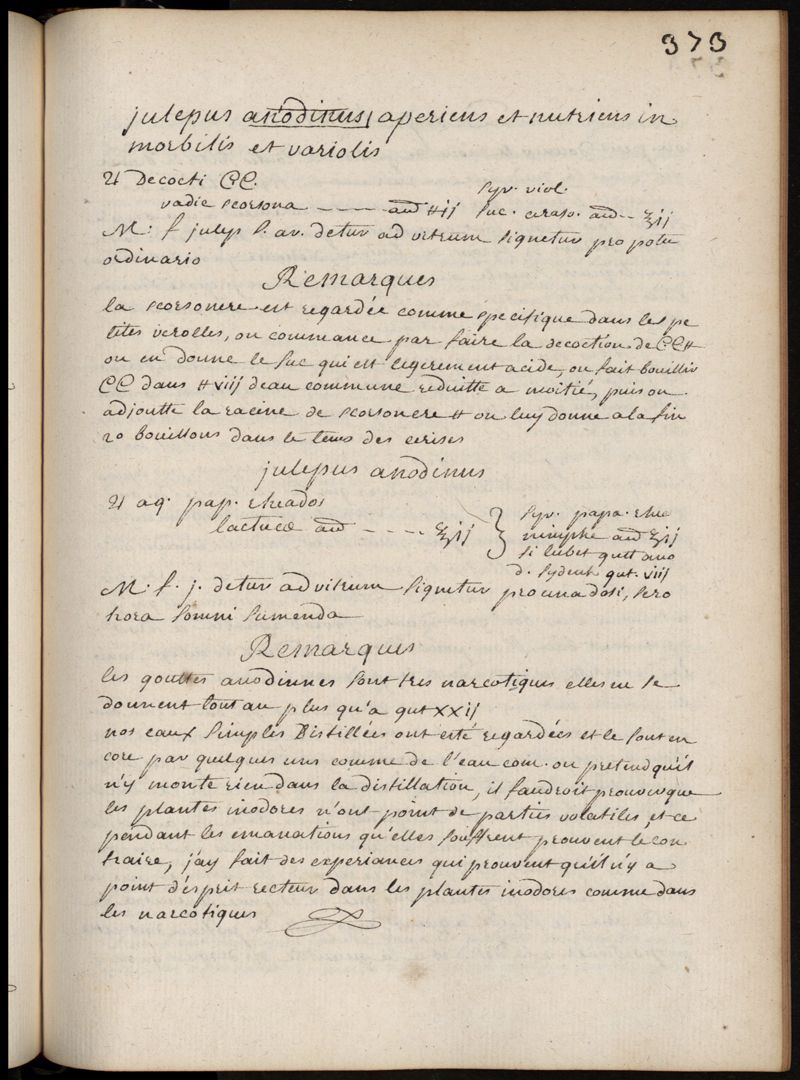 373
julepus anodinus, aperiens et nutriens in
morbilis et variolis
♃ Decocti CC.
radic scorsona ---- ana ℔ij syr. viol.
suc. ceraso. ana -- ℥ij
M: f julep s. ar. detur ad vitrum signetur pro potu
ordinario
Remarques
la scorsonere est regardée comme specifique dans les pe
tites verolles, on commance par faire la decoction de CC #
on en donne le suc qui est legerement acide, on fait bouillir
CC dans ℔ viij deau commune reduitte a moitié, puis on
adjoutte la racine de scorsonere # on luy donne a la fin
20 bouillons dans le tems des cerises
julepus anodinus
♃ aq. pap. rheados
lactucæ ana ---- ℥ij } syr. papa. rhe
nimphe ana ℥ij
si lubet gutt ano
d. sydenh gut. viij
M. f. j. detur ad vitrum signetur pro una dosi, sero
hora somni sumenda
Remarques
les gouttes anodinnes sont tres narcotiques elles ne se
donnent tout au plus qu'a gut xxij
nos eaux simples Distillées ont esté regardées et le sont en
core par quelques uns comme de l'eau com. on pretend qu'il
n'y monte rien dans la distillation, il faudroit prouver que
les plantes inodores n'ont point de parties volatiles, et ce
pendant les emanations qu'elles souffrent prouvent le con
traire, j'ay fait des experiances qui prouvent qu'il n'y a
point d'esprit recteur dans les plantes inodores comme dans
les narcotiques